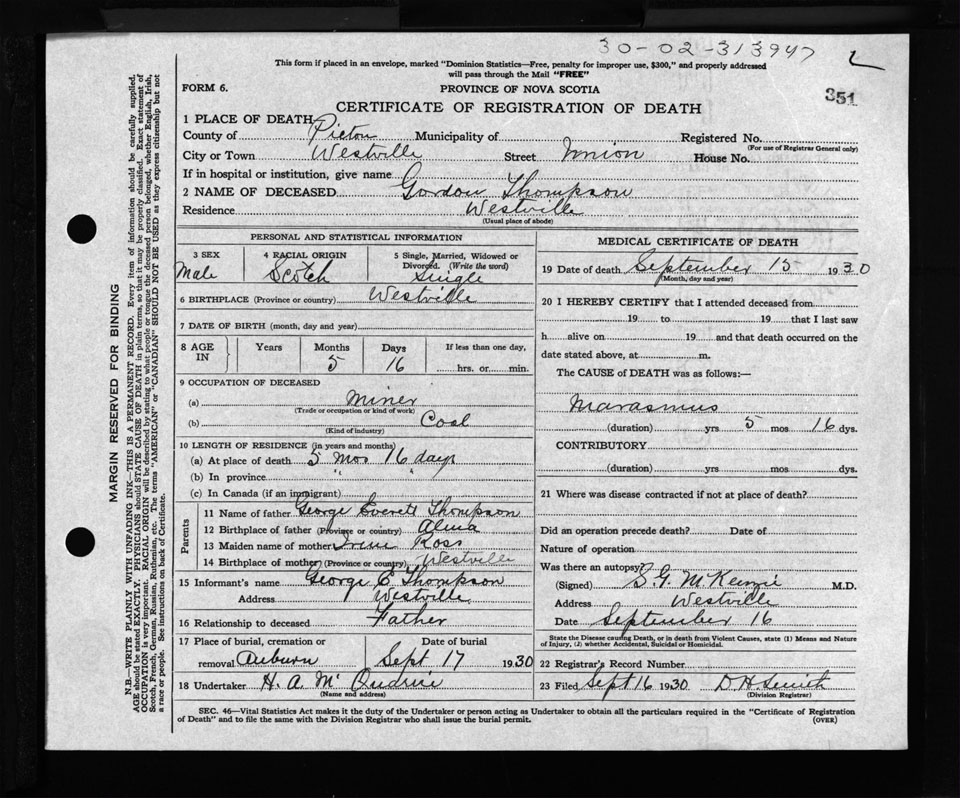 30-02-313947 2
This form if placed in an envelope, marked "Dominion Statistics—Free, penalty for improper use, $300," and properly addressed
will pass through the Mail "FREE"
351
FORM 6. PROVINCE OF NOVA SCOTIA
CERTIFICATE OF REGISTRATION OF DEATH
1 PLACE OF DEATH
County of Pictou Municipality of Registered No.
(For use of Registrar General only)
City or Town Westville Street Union House No.
If in hospital or institution, give name
2 NAME OF DECEASED Gordon Thompson
Residence Westville
(Usual place of abode)
PERSONAL AND STATISTICAL INFORMATION
3 SEX 4 RACIAL ORIGIN 5 Single, Married, Widowed or
Divorced. (Write the word)
Male Scotch Single
6 BIRTHPLACE (Province or country) Westville
7 DATE OF BIRTH (month, day and year)
8 AGE IN Years Months Days If less than one day,
5 16 hrs. or min.
9 OCCUPATION OF DECEASED
(a) Miner
(Trade or occupation or kind of work)
(b) Coal
(Kind of industry)
10 LENGTH OF RESIDENCE (in years and months)
(a) At place of death 5 mos 16 days
(b) In province " "
(c) In Canada (if an immigrant)
Parents
11 Name of father George Everett Thompson
12 Birthplace of father (Province or country) Alma
13 Maiden name of mother Irene Ross
14 Birthplace of mother (Province or country) Westville
15 Informant's name George E Thompson
Address Westville
16 Relationship to deceased Father
17 Place of burial, cremation or Date of burial
removal Auburn Sept 17 1930
18 Undertaker H. A. Mc
(Name and address)
MEDICAL CERTIFICATE OF DEATH
19 Date of death September 15 1930
(Month, day and year)
20 I HEREBY CERTIFY that I attended deceased from
19 to 19 that I last saw
h alive on 19 and that death occurred on the
date stated above, at m.
The CAUSE of DEATH was as follows:—
Marasmus
(duration) yrs 5 mos 16 dys.
CONTRIBUTORY
(duration) yrs mos dys.
21 Where was disease contracted if not at place of death?
Did an operation precede death? Date of
Nature of operation
Was there an autopsy?
(Signed) S. G. McKenzie M.D.
Address Westville
Date September 16
State the Disease causing Death, or in death from Violent Causes, state (1) Means and Nature
of Injury, (2) whether Accidental, Suicidal or Homicidal.
22 Registrar's Record Number
23 Filed Sept 16 1930 D H Smith
(Division Registrar)
SEC. 46—Vital Statistics Act makes it the duty of the Undertaker or person acting as Undertaker to obtain all the particulars required in the "Certificate of Registration
of Death" and to file the same with the Division Registrar who shall issue the burial permit. (OVER)
MARGIN RESERVED FOR BINDING
N.B.—WRITE PLAINLY WITH UNFADING INK—THIS IS A PERMANENT RECORD. Every item of information should be carefully supplied.
AGE should be stated EXACTLY. PHYSICIANS should STATE CAUSE OF DEATH in plain terms, so that it may be properly classified. Exact statement of
OCCUPATION is very important. RACIAL ORIGIN will be described by stating to what people or tongue the deceased person belonged, whether English, Irish,
Scotch, French, German, Russian, Ruthenian, etc. The terms "AMERICAN" or "CANADIAN" SHOULD NOT BE USED as they express citizenship but not
a race or people. See instructions on back of Certificate.